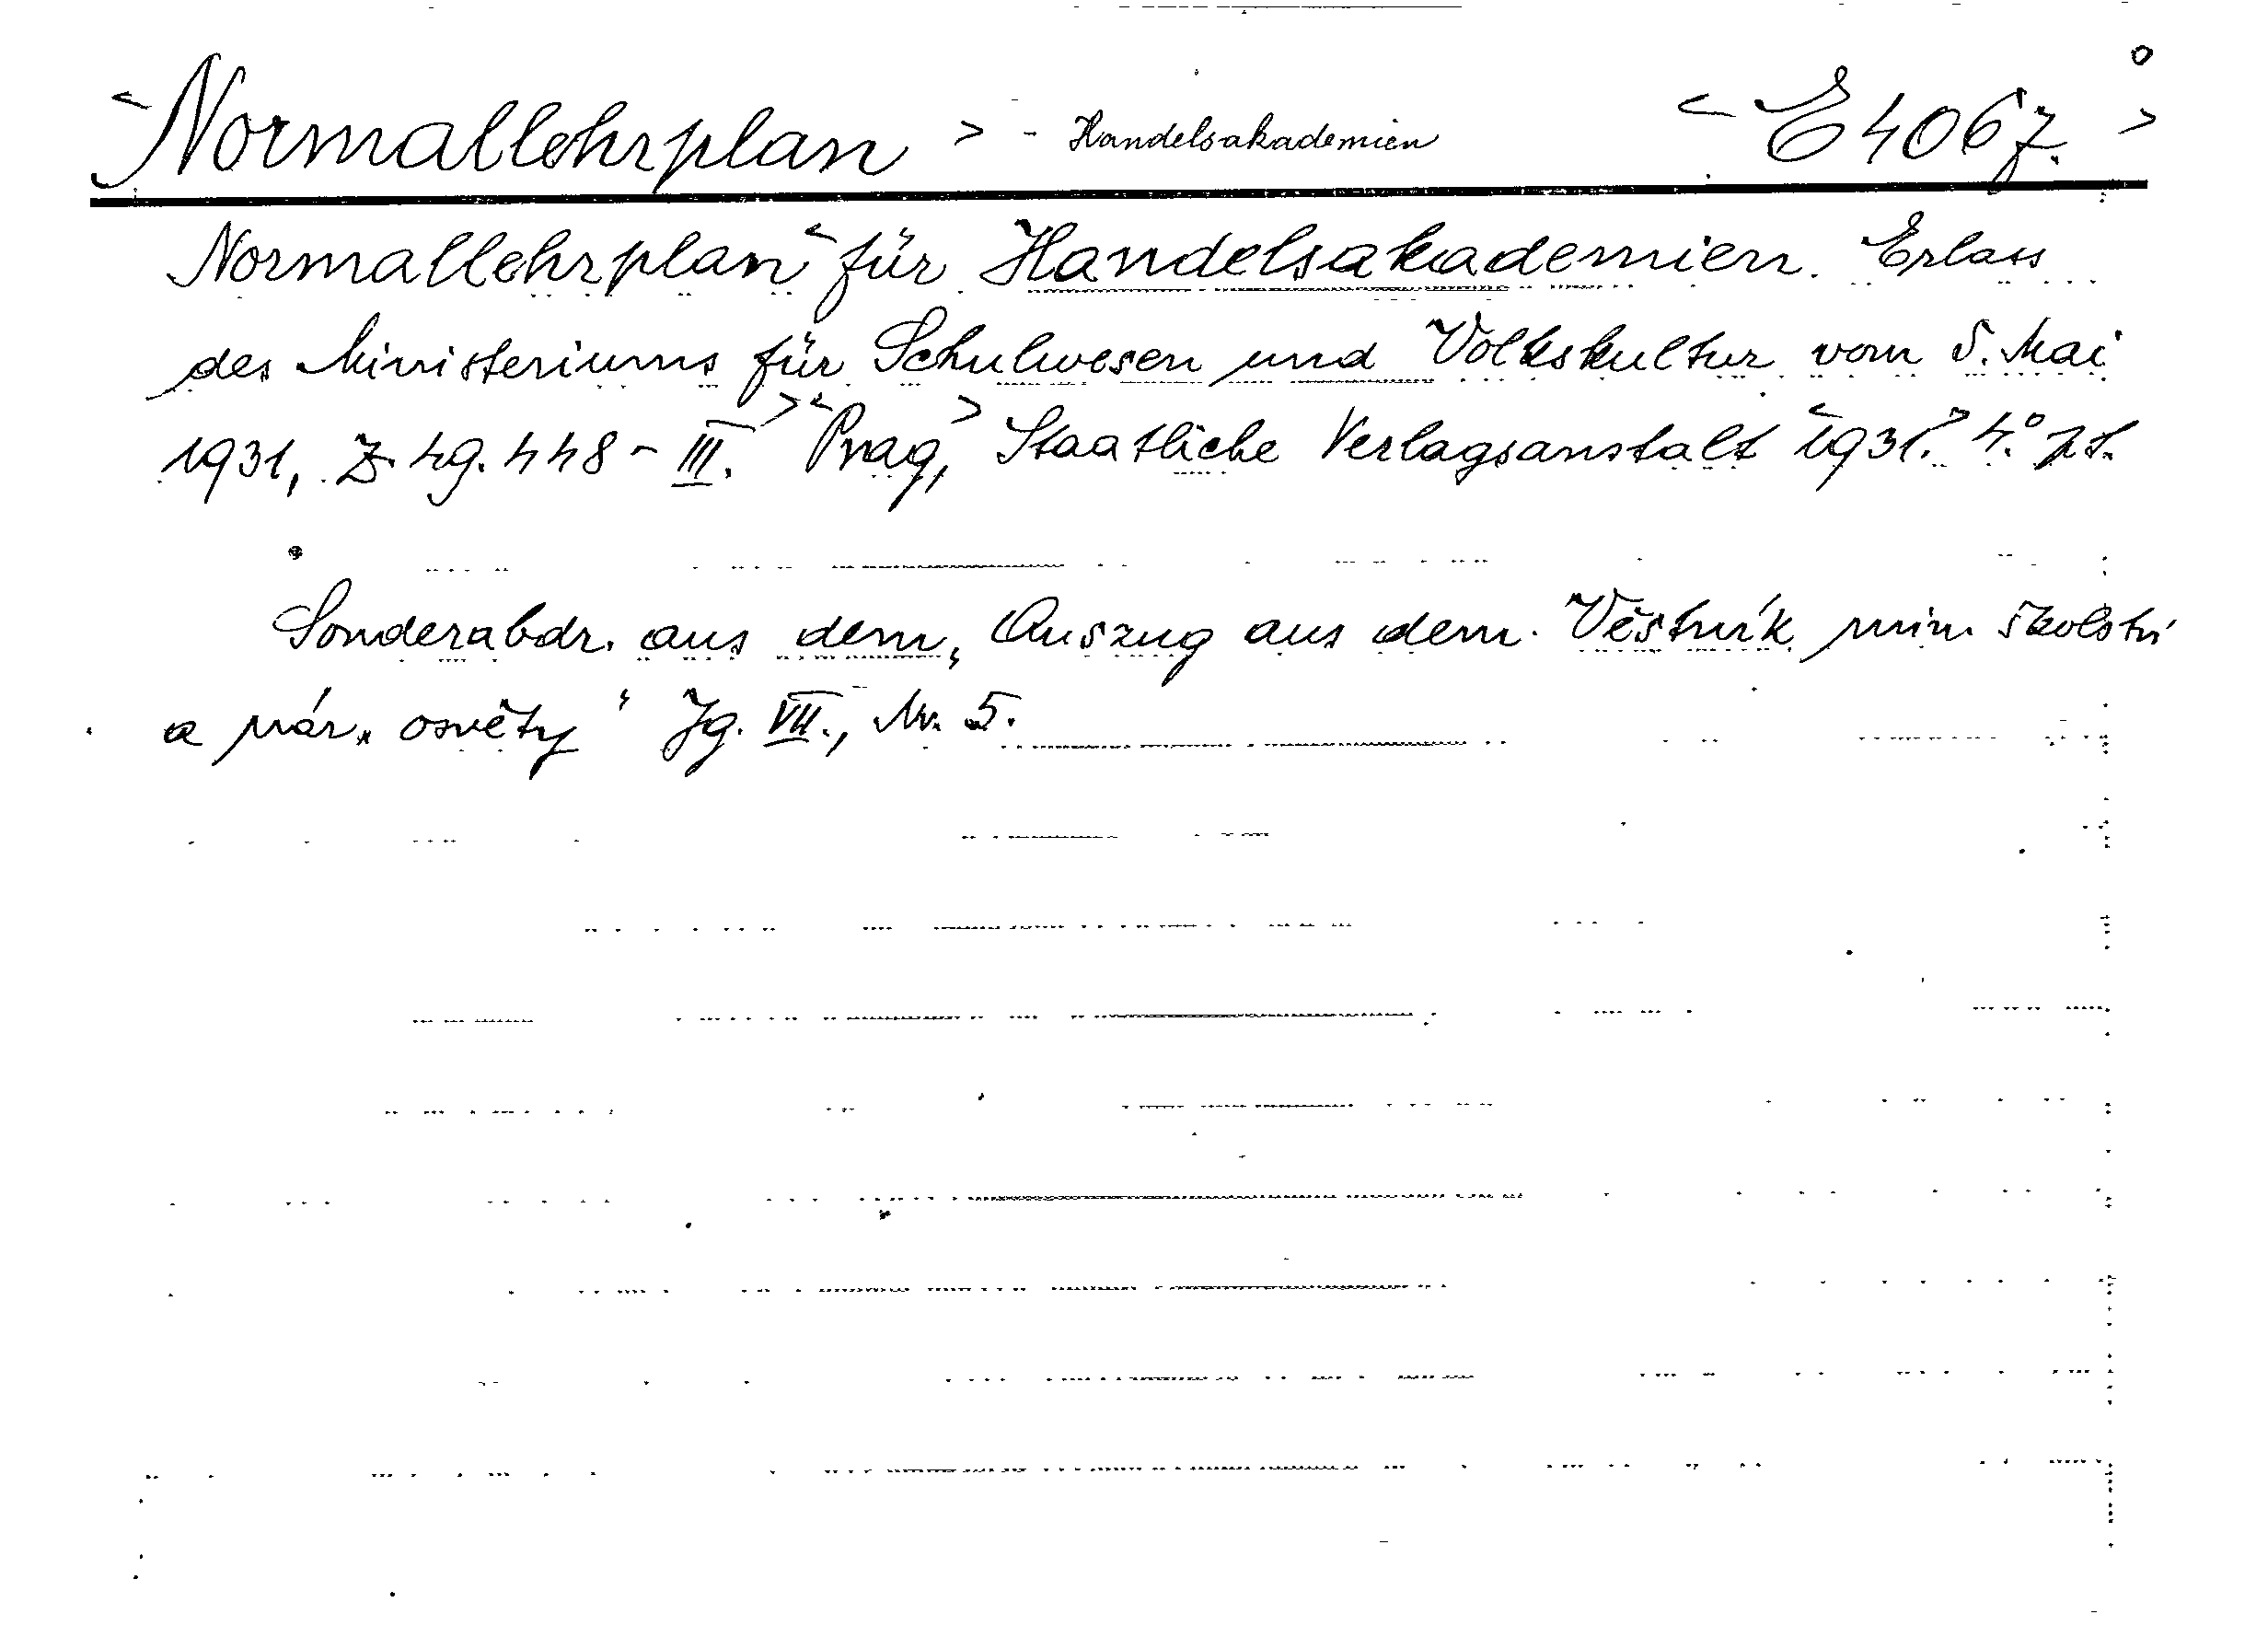 < Normallehrplan > - Handelsakademien < E 4067. >
Normallehrplan < für Handelsakademien. Erlass
des Ministeriums für Schulwesen und Volkskultur vom 5. Mai
1931, Z. 49.448 - III. > < Prag, > Staatliche Verlagsanstalt < 1931. > 4.° 7 S.
Sonderabdr. aus dem „Auszug aus dem Věstník min. školství
a nár. osvěty" Jg. VII., Nr. 5.